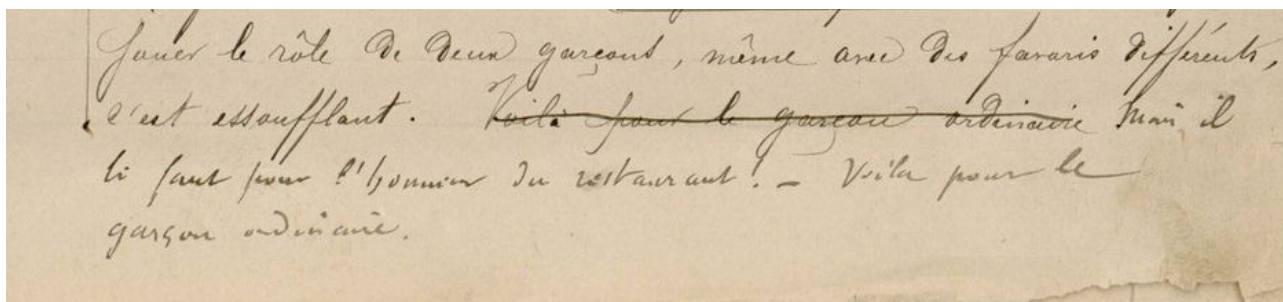 Jouer le rôle de deux garçons, même avec des favoris différents,
c'est essoufflant. Voilà pour le garçon ordinaire Mais il
le faut pour l'honneur du restaurant! - Voila pour le
garçon ordinaire.